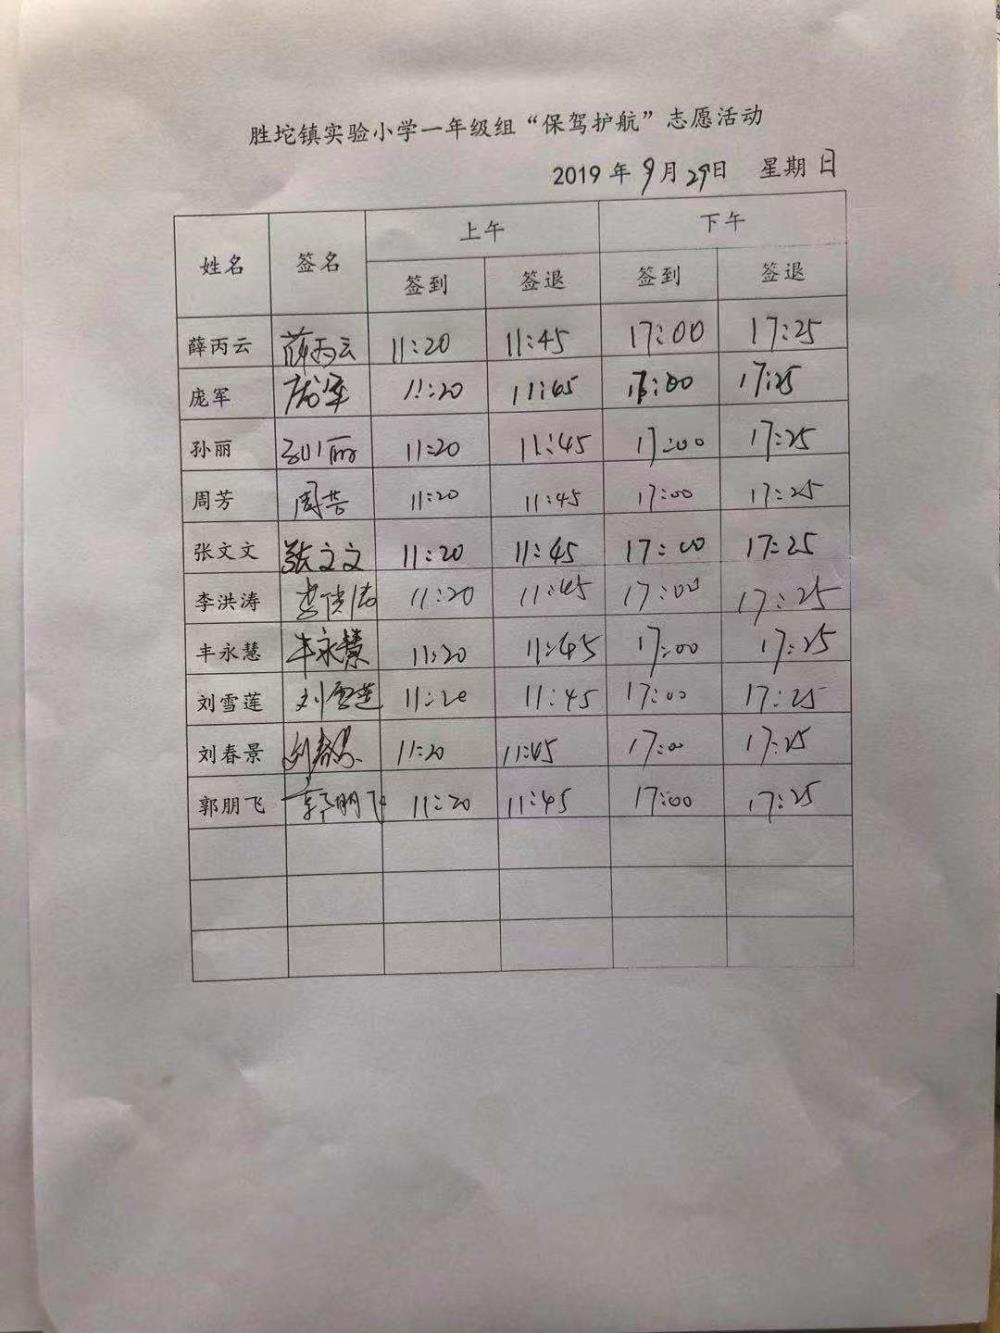 胜坨镇实验小学一年级组“保驾护航”志愿活动
2019 年 9月 29日 星期 日
姓名 签名 上午 下午
签到 签退 签到 签退
薛丙云 薛丙云 11:20 11:45 17:00 17:25
庞军 庞军 11:20 11:45 17:00 17:25
孙丽 孙丽 11:20 11:45 17:00 17:25
周芳 周芳 11:20 11:45 17:00 17:25
张文文 张文文 11:20 11:45 17:00 17:25
李洪涛 李洪涛 11:20 11:45 17:00 17:25
丰永慧 丰永慧 11:20 11:45 17:00 17:25
刘雪莲 刘雪莲 11:20 11:45 17:00 17:25
刘春景 刘春景 11:20 11:45 17:00 17:25
郭朋飞 郭朋飞 11:20 11:45 17:00 17:25